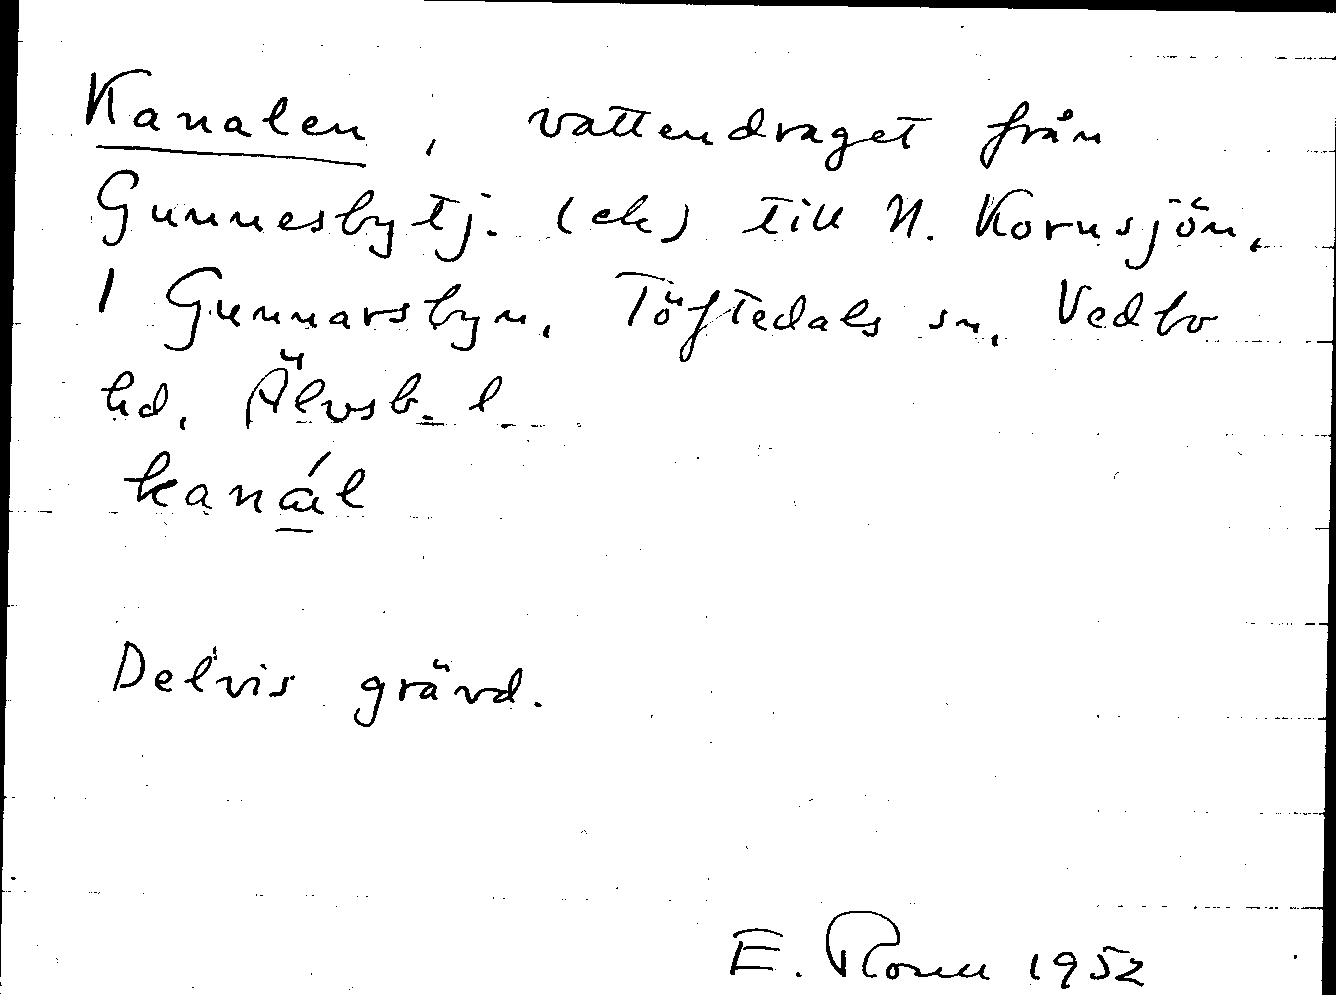 Kanalen, vattendraget från
Gunnesbytj. (ek) till N. Kornsjön,
1 Gunnarsbyn, Töftedals sn, Vedbo
hd, Älvsb. l.
kanál
Delvis grävd.
E. 1952